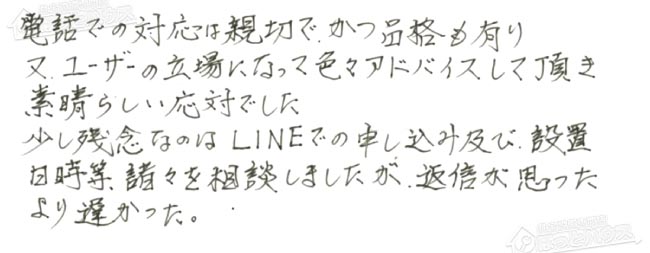 電話での対応は親切で、かつ品格も有り
又、ユーザーの立場になって色々アドバイスして頂き
素晴らしい応対でした
少し残念なのはLINEでの申し込み及び、設置
日時等、諸々を相談しましたが、返信が思った
より遅かった。